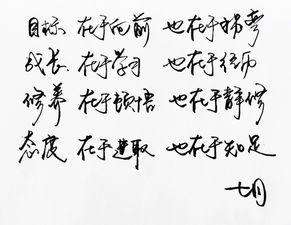 目标 在于向前 也在于拐弯
成长 在于学习 也在于经历
修养 在于顿悟 也在于静修
态度 在于进取 也在于知足
七月